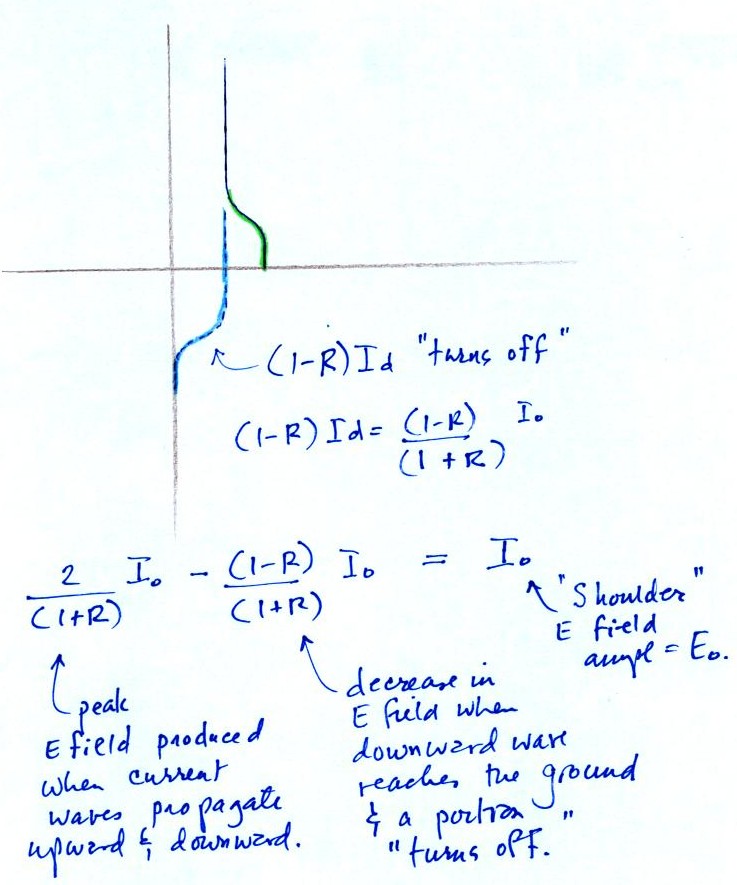 (1-R) Id "turns off"
(1-R) Id = (1-R)/(1+R) Io
2/(1+R) Io - (1-R)/(1+R) Io = Io
"Shoulder"
E field
ampl = Eo.
peak
E field produced
when current
waves propagate
upward & downward.
decrease in
E field when
downward wave
reaches the ground
& a portion
"turns off."